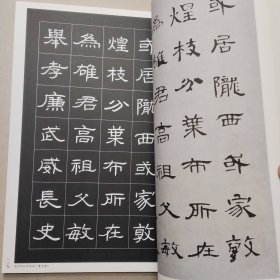 或居隴西或家
煌枝分葉布所在
為雄君高祖父敏
舉孝廉武威長史
或居隴西或家敦
煌枝分葉布所在
雄君高祖父敏